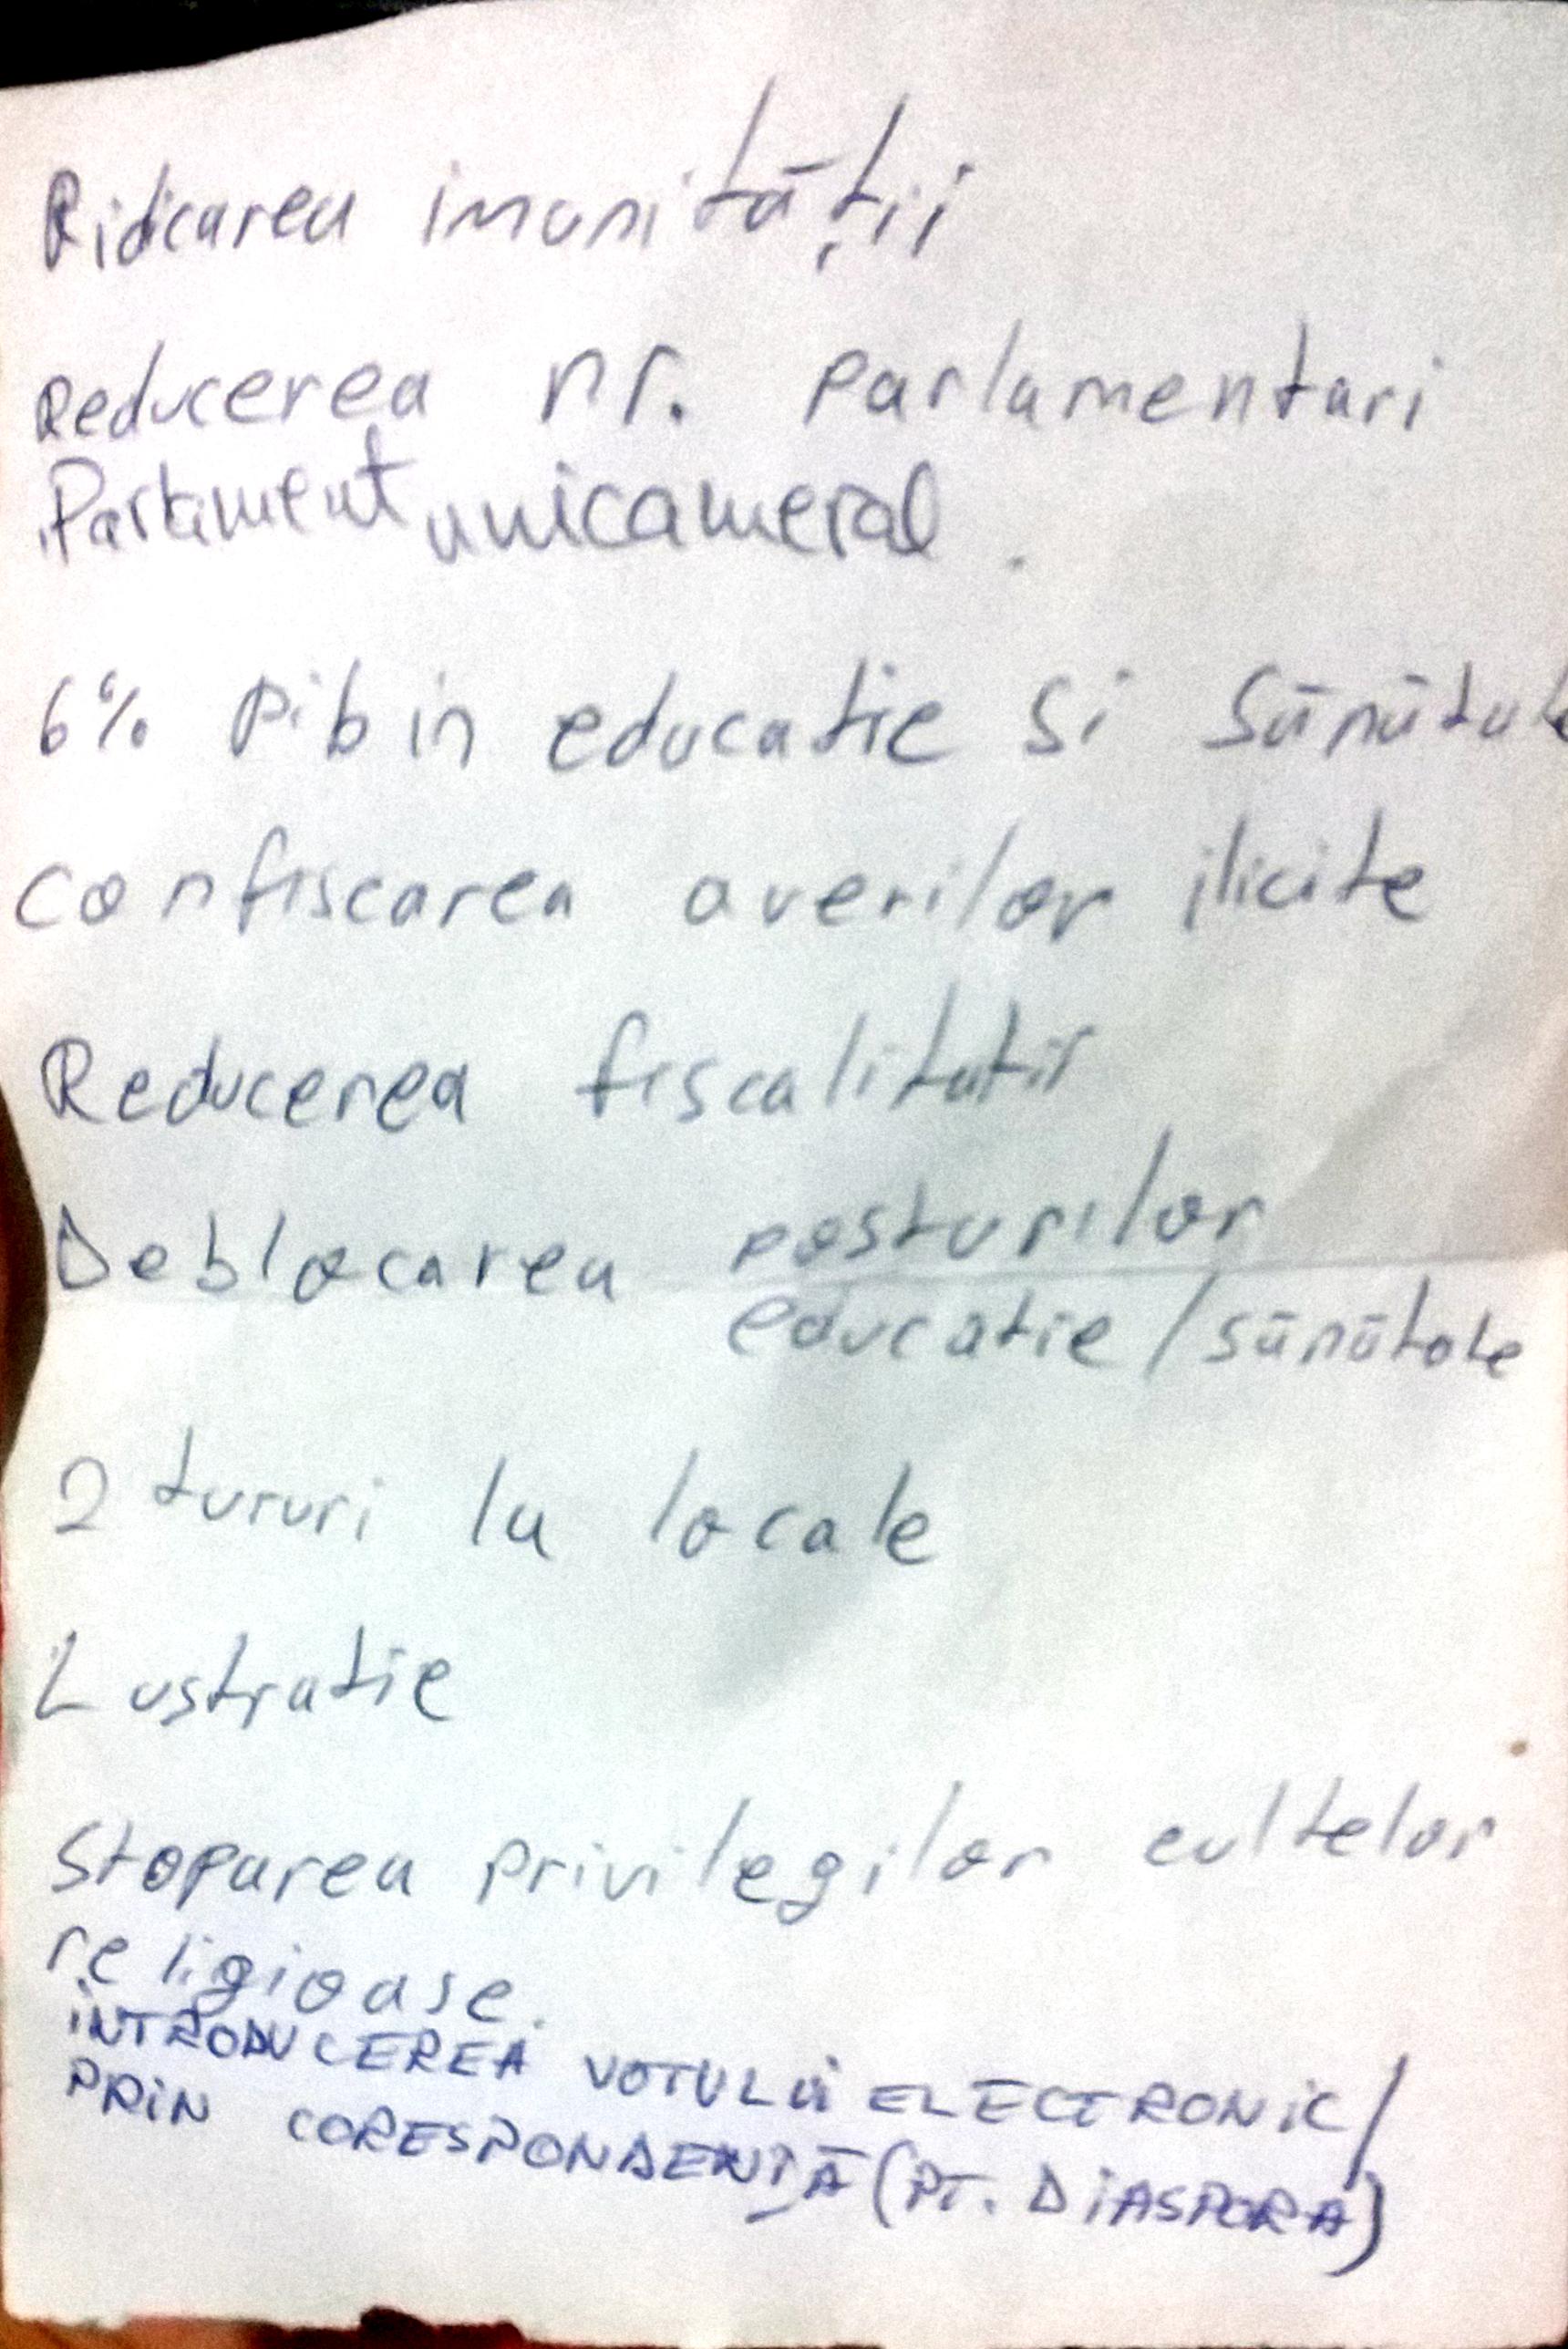 Ridicarea imunității
Reducerea nr. parlamentari
Parlament unicameral.
6% Pib in educatie si sănătate
confiscarea averilor ilicite
Reducerea fiscalitatii
Deblocarea posturilor
educatie/sănătate
2 tururi la locale
Lustratie
Stoparea privilegilor cultelor
religioase.
INTRODUCEREA VOTULUI ELECTRONIC/
PRIN CORESPONDENȚĂ (PT. DIASPORA)